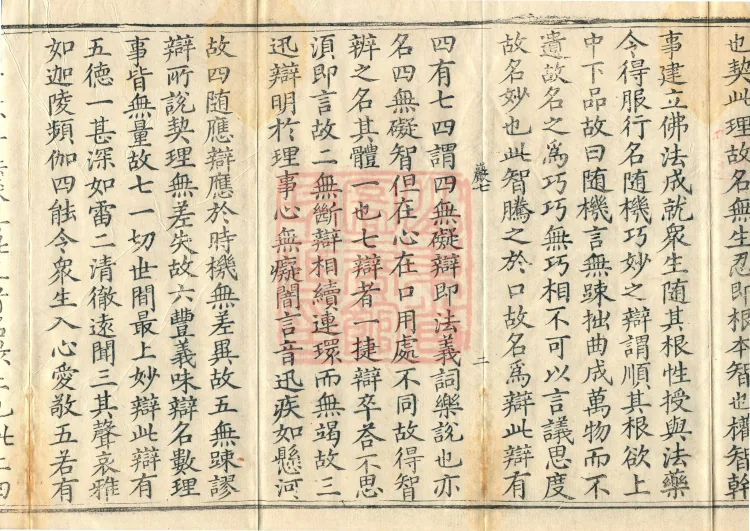 也契此理故名無生忍即根本智也權智幹
事建立佛法成就衆生隨其根性授與法藥
令得服行名隨機巧妙之辯謂順其根欲上
中下品故曰隨機言無踈拙曲成萬物而不
遺故名之爲巧巧無巧相不可以言議思度
故名妙也此智騰之於口故名爲辯此辯有
巖七
二
四有七四謂四無礙辯即法義詞樂說也亦
名四無礙智但在心在口用處不同故得智
辨之名其體一也七辯者一捷辯卒荅不思
湏即言故二無斷辯相續連環而無竭故三
迅辯明於理事心無癡闇言音迅疾如懸河
故四隨應辯應於時機無差異故五無踈謬
辯所說契理無差失故六豐義味辯名數理
事皆無量故七一切世間最上妙辯此辯有
五德一甚深如雷二清徹遠聞三其聲哀雅
如迦陵頻伽四能令衆生入心愛敬五若有